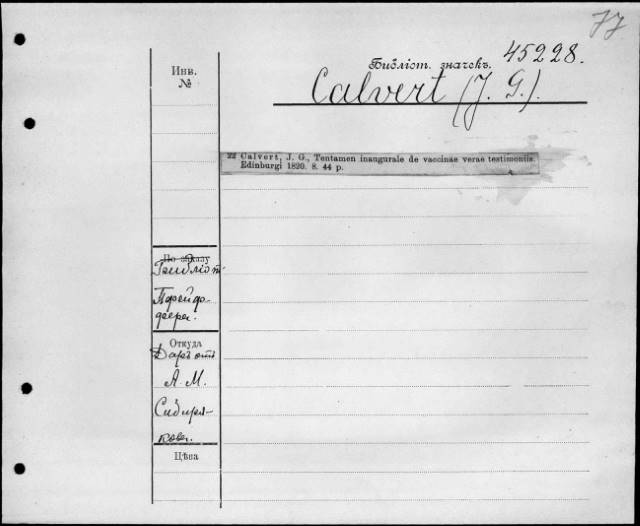 77
Инв.
№
Библіот. значекъ. 45228.
Calvert (J. G.).
22 Calvert, J. G., Tentamen inaugurale de vaccinae verae testimoniis.
Edinburgi 1820. 8. 44 p.
По заказу
Библіот.
Пфейф-
фера.
Откуда
Даръ отъ
А. М.
Сибиря-
кова.
Цѣна